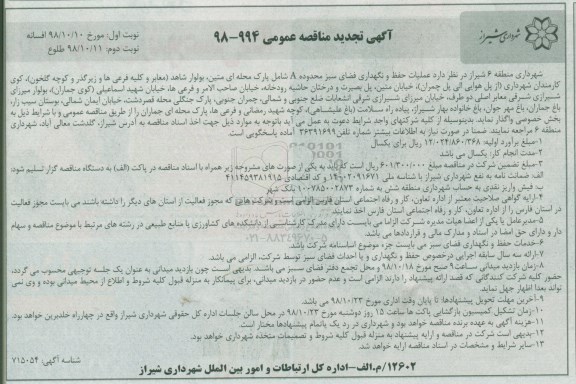 آگهی تجدید مناقصه عمومی ۹۹۴-۹۸
نوبت اول: مورخ ۹۸/۱۰/۱۰ افسانه
نوبت دوم: ۹۸/۱۰/۱۱ طلوع
شهرداری شیراز
شهرداری منطقه ۶ شیراز در نظر دارد عملیات حفظ و نگهداری فضای سبز محدوده A شامل پارک محله ای متین، بولوار شاهد (معابر و کلیه فرعی ها و زیرگذر و کوچه گلخون)، کوی
کارمندان شهرداری (از پل هوایی الی پل چمران)، خیابان متین، پل بصیرت و درختان حاشیه رودخانه، خیابان صاحب الامر و فرعی ها، خیابان شهید اسماعیلی (کوی جماران)، بولوار میرزای
شیرازی شرقی معابر اصلی دو طرف، خیابان میرزای شیرازی شرقی انشعابات ضلع جنوبی و شمالی، چمران جنوبی، پارک جنگلی محله قصردشت، خیابان ایمان شمالی، بوستان سیب زار،
باغ جماران، باغ مهر جوان، باغ خانواده بهار شیراز، پیاده راه سلامت (باغ عفیفشاهی)، کوچه شهید رمضانی و فرعی ها، پارک محله ای جماران را از طریق مناقصه عمومی و با شرایط ذیل به
بخش خصوصی واگذار نماید. بدینوسیله از کلیه شرکتهای واجد شرایط دعوت به عمل می آید باتوجه به موارد ذیل جهت اخذ اسناد مناقصه به آدرس شیراز، گلدشت معالی آباد، شهرداری
منطقه ۶ مراجعه نمایند. ضمنا در صورت نیاز به اطلاعات بیشتر شماره تلفن ۳۶۳۹۱۶۹۹ آماده پاسخگویی است.
۱-مبلغ برآورد اولیه: ۱۲/۰۲۴/۸۶۰/۳۶۸ ریال برای یکسال
۲-مدت انجام کار: یکسال می باشد
۳-مبلغ تضمین شرکت در مناقصه مبلغ ۶۰۱/۳۰۰/۰۰۰ ریال است که باید به یکی از صورت های مشروحه زیر همراه با اسناد مناقصه در پاکت (الف) به دستگاه مناقصه گزار تسلیم شود:
الف: ضمانت نامه به نفع شهرداری شیراز با شناسه ملی ۱۴۰۰۲۰۹۱۶۷۱ و کد اقتصادی ۴۱۱۴۵۹۳۸۱۹۱۵
ب: فیش واریز نقدی به حساب شهرداری منطقه شش به شماره ۱۰۰۷۸۵۰۰۲۸۷۳ بانک شهر
۴-ارایه گواهی صلاحیت معتبر از اداره تعاون، کار و رفاه اجتماعی استان فارس الزامی است و شرکت هایی که مجوز فعالیت از استان های دیگر را داشته باشند، می بایست مجوز فعالیت
در استان فارس را از اداره تعاون، کار و رفاه اجتماعی استان فارس اخذ نمایند.
۵-مدیرعامل یا یکی از اعضا هیات مدیره شرکت الزاما می بایست دارای مدرک کارشناسی از دانشکده های کشاورزی یا منابع طبیعی در رشته های مرتبط با موضوع مناقصه و سهام
دار و دارای حق امضا در اسناد و مدارک مالی و قراردادها می باشد.
۶-خدمات حفظ و نگهداری فضای سبز می بایست جزء موضوع اساسنامه شرکت باشد.
۷-ارائه سه سال سابقه اجرایی درخصوص حفظ و نگهداری و یا احداث فضای سبز توسط شرکت، الزامی می باشد.
۸-زمان بازدید میدانی ساعت ۹ صبح مورخ ۹۸/۱۰/۱۸ و محل تجمع دفتر فضای سبز می باشند. بدیهی است چون بازدید میدانی به عنوان یک جلسه توجیهی محسوب می گردد،
حضور کلیه شرکت کنندگانی که قصد ارائه پیشنهاد را دارند الزامی است و عدم حضور در بازدید میدانی، برای پیمانکار به منزله قبول کلیه شروط و اطلاع از محیط میدانی بوده و وی نمی
تواند بعدا اظهار جهل نماید
۹-آخرین مهلت تحویل پیشنهادها: تا پایان وقت اداری مورخ ۹۸/۱۰/۲۳ می باشد.
۱۰-زمان تشکیل کمیسیون بازگشایی پاکت ها: ساعت ۱۵ روز دوشنبه مورخ ۹۸/۱۰/۲۳ در محل سالن جلسات اداره کل حقوقی شهرداری شیراز واقع در چهارراه خلدبرین خواهد بود.
۱۱-هزینه آگهی به عهده برنده مناقصه خواهد بود و شهرداری در رد یک یا تمام پیشنهادها مختار است.
۱۲-بدیهی است شرکت در مناقصه و ارایه پیشنهاد به منزله قبول کلیه شروط و تصمیمات متخذه شهرداری خواهد بود.
۱۳-سایر شرایط و مشخصات در اسناد مناقصه ارایه خواهد شد.
شناسه آگهی: ۷۱۵۰۵۴
۱۲۶۰۲/م.الف-اداره کل ارتباطات و امور بین الملل شهرداری شیراز